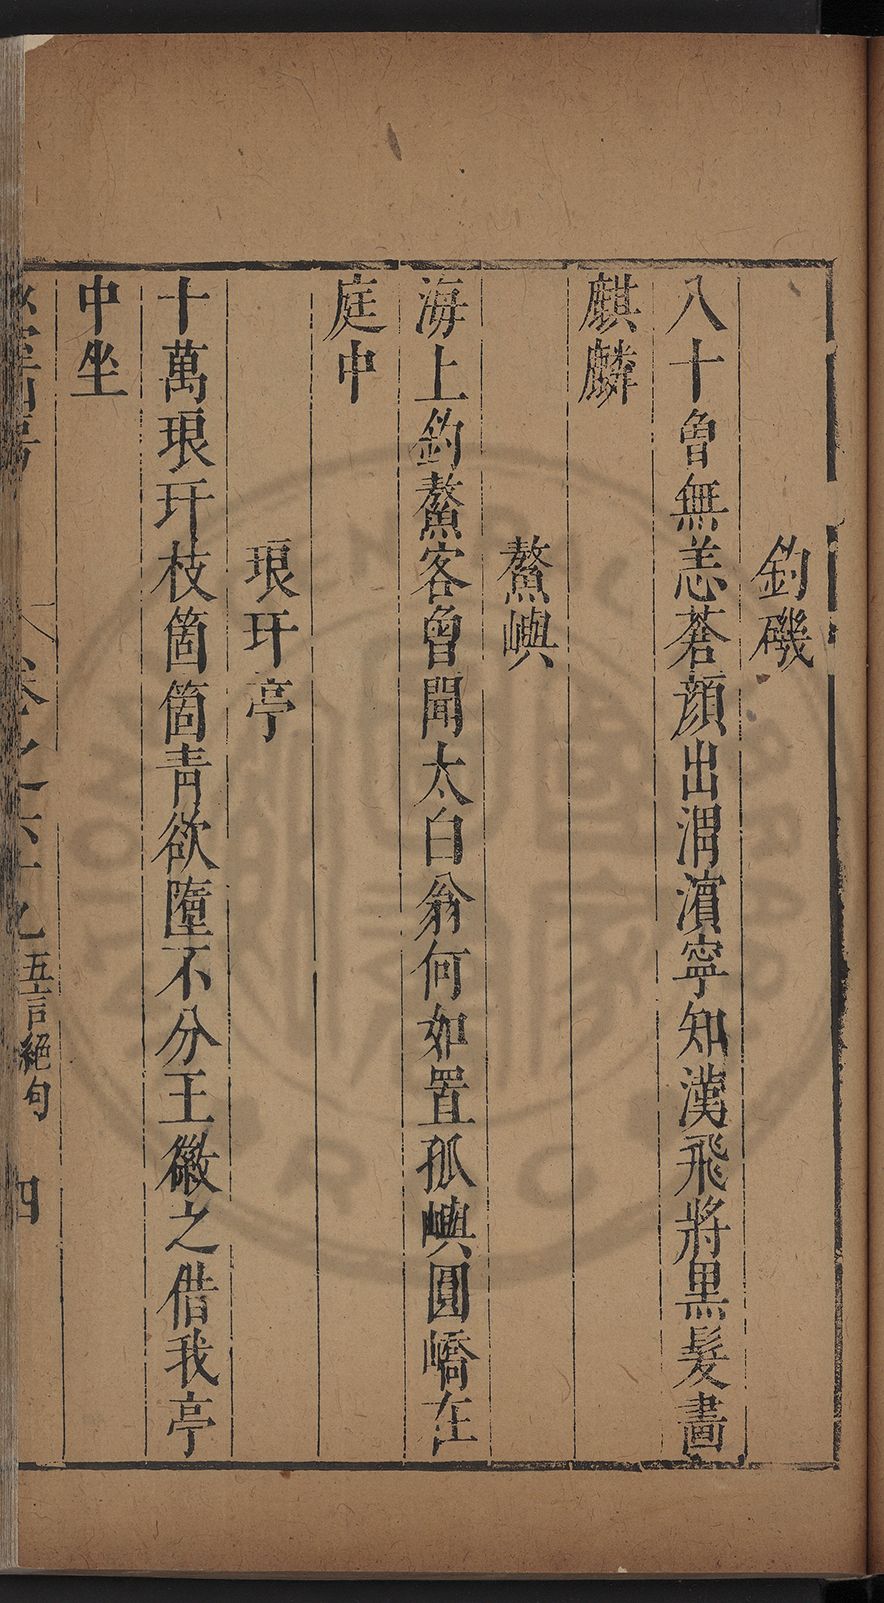 釣磯
八十曾無恙蒼顔出渭濵寧知漢飛將黒髮畫
麒麟
鰲嶼
海上釣鰲客曾聞太白翁何如置孤嶼圓嶠在
庭中
琅玕亭
十萬琅玕枝箇箇青欲墮不分王徽之借我亭
中坐
卷之六十九 五言絕句 四